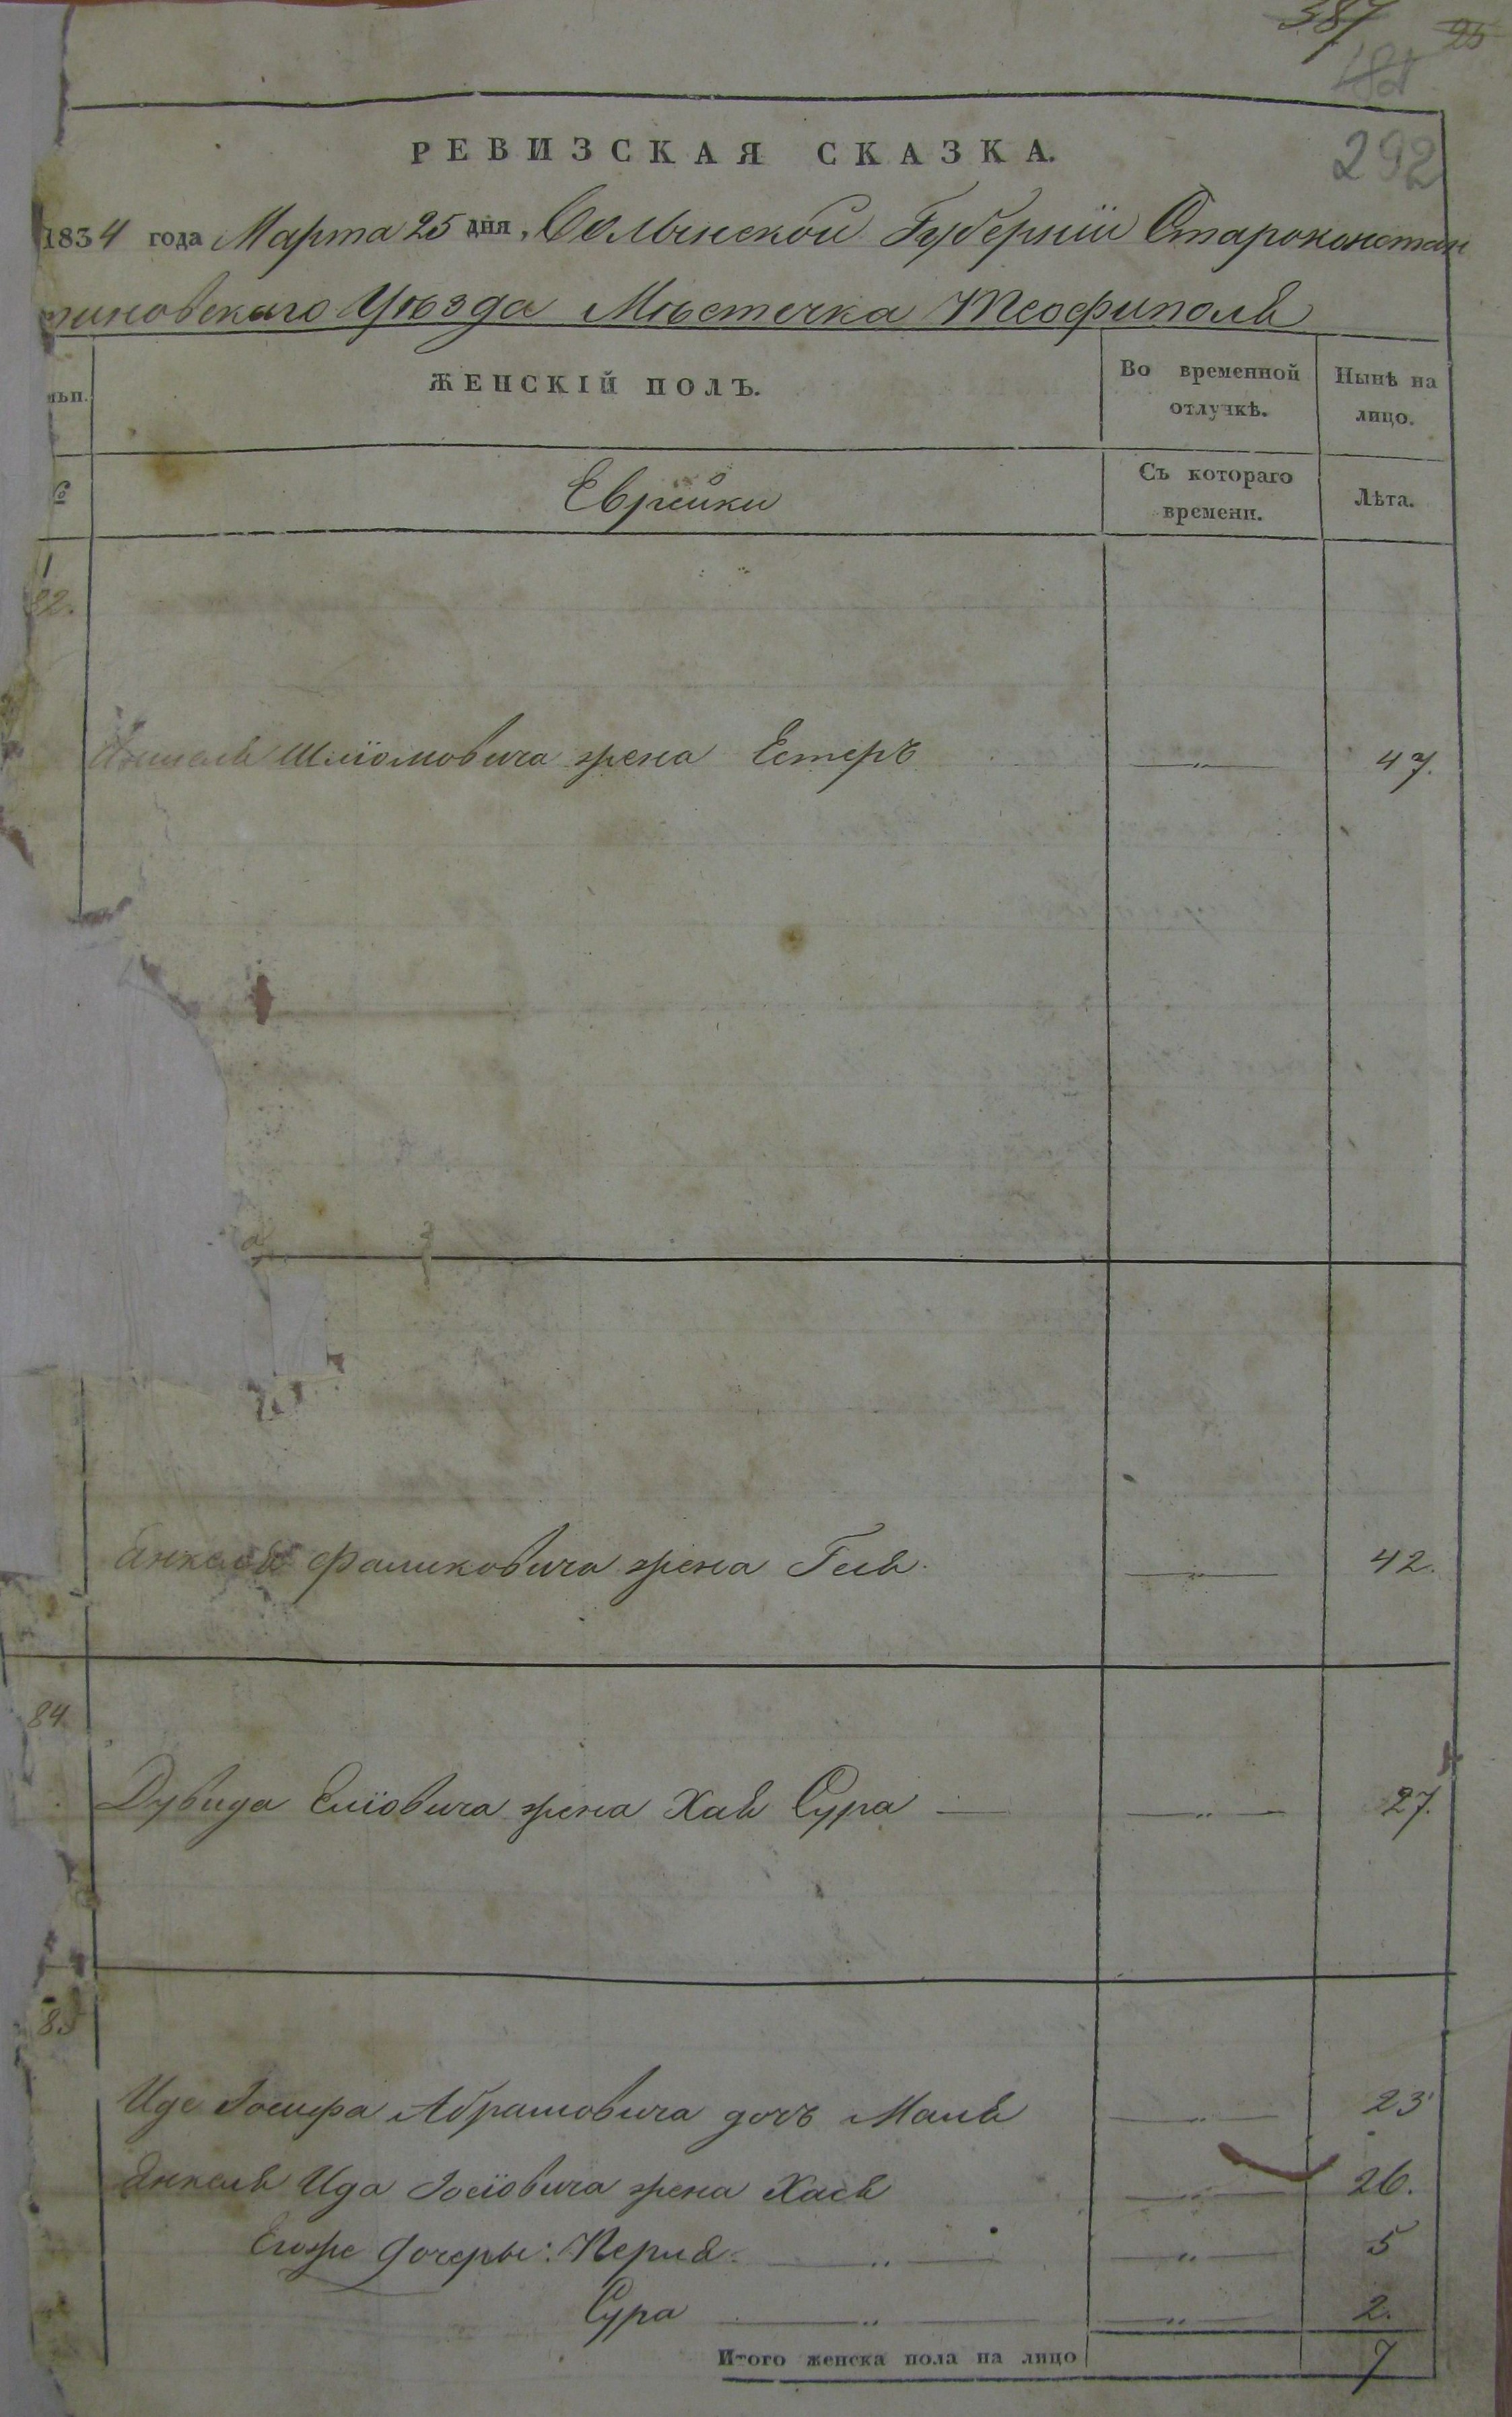 387 95
292
РЕВИЗСКАЯ СКАЗКА.
1834 года Марта 25 дня, Волынской Губернїи Староконстан
тиновскаго Уѣзда Мѣстечка Теофиполя
ЖЕНСКІЙ ПОЛЪ.
Во временной отлучкѣ.
Нынѣ на лицо.
Еврейки
Съ котораго времени.
Лѣта.
82.
Шліомовича жена Естеръ 47.
Янкеля Фаликовича жена Геля 42.
84
Дувида Еліовича жена Хая Сура 27.
85
Иде Іосифа Абрамовича дочь Маля 23
Янкеля Ида Іосіовича жена Хася 26.
Егоже дочеры: Перля 5
Сура 2.
Итого женска пола на лицо 7